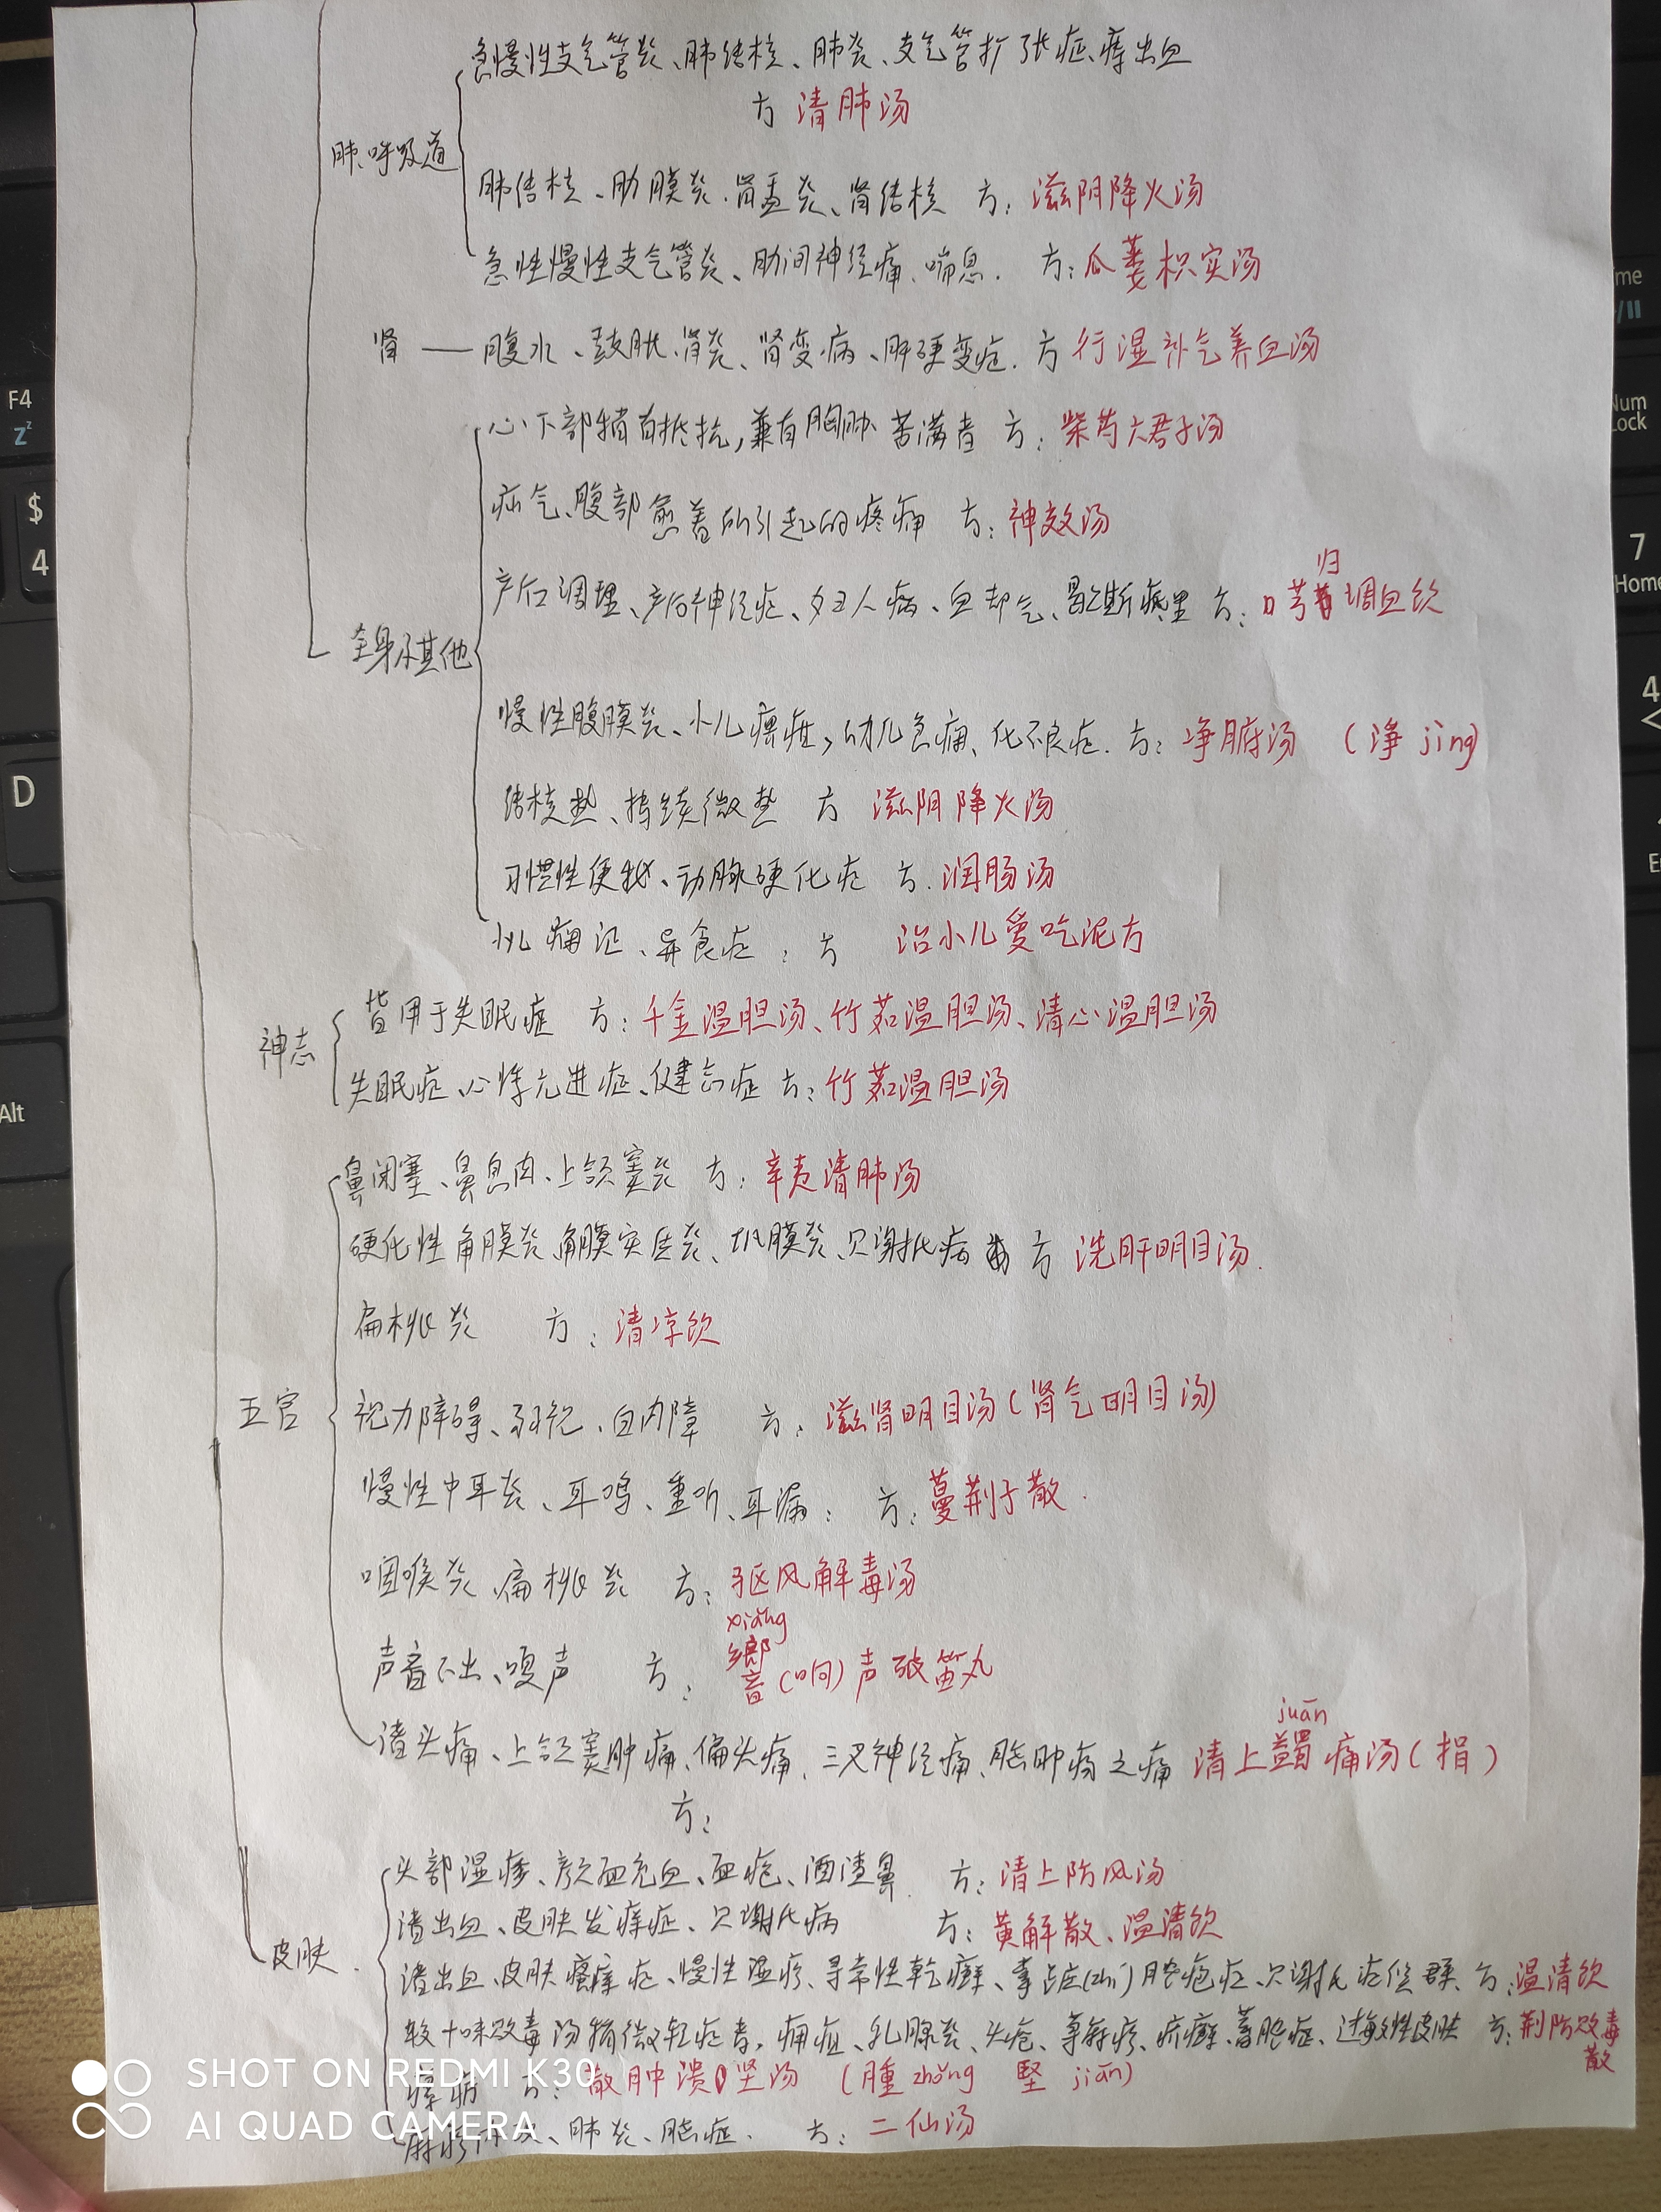 急慢性支气管炎、肺结核、肺炎、支气管扩张症、痔出血
方 清肺汤
肺、呼吸道
肺结核、肋膜炎、肾盂炎、肾结核 方: 滋阴降火汤
急性慢性支气管炎、肋间神经痛、喘息. 方: 瓜蒌枳实汤
肾 — 腹水、鼓胀、肾炎、肾变病、肝硬变症. 方 行湿补气养血汤
心下部稍有抵抗,兼有胸胁苦满者 方: 柴芍六君子汤
疝气、腹部 所引起的疼痛 方: 神效汤
归
产后调理、产后神经症、妇人病、血却气、 方: 芎 调血饮
全身及其他
慢性腹膜炎、小儿 症,幼儿 、化不良症. 方: 净腑汤 (净 jìng)
结核热、持续微热 方 滋阴降火汤
习惯性便秘、动脉硬化症 方. 润肠汤
小儿 、异食症: 方 治小儿爱吃泥方
皆用于失眠症 方: 千金温胆汤、竹茹温胆汤、清心温胆汤
神志
失眠症、心悸亢进症、健忘症 方: 竹茹温胆汤
鼻闭塞、鼻息肉、上颌窦炎 方: 辛夷清肺汤
硬化性角膜炎、角膜实质炎、巩膜炎、 方 洗肝明目汤.
扁桃炎 方: 清凉饮
五官
视力障碍、弱视、白内障 方: 滋肾明目汤(肾气明目汤)
慢性中耳炎、耳鸣、重听、耳漏: 方: 蔓荆子散.
咽喉炎、扁桃炎 方: 驱风解毒汤
xiǎng
声音不出、嗄声 方: 響(响)声破笛丸
juān
诸头痛、上颌窦肿痛、偏头痛、三叉神经痛、脑肿疡之痛 清上蠲痛汤(捐)
方:
头部湿疹、颜面充血、面疱、酒渣鼻. 方: 清上防风汤
诸出血、皮肤发痒症、 方: 黄解散、温清饮
皮肤.
诸出血、皮肤瘙痒症、慢性湿疹、寻常性乾癣、掌 症 脓疱症、 症候群、方: 温清饮
较十味败毒汤稍微轻症者,痈疽、乳腺炎、头疮、荨麻疹、疥癣、蓄脓症、过敏性皮肤 方: 荆防败毒
散
方: 散肿溃坚汤 (腫 zhǒng 堅 jiān)
麻疹 、肺炎、脑症. 方: 二仙汤
SHOT ON REDMI K30
AI QUAD CAMERA
F4
$
4
D
Alt
7
Home
Num
Lock